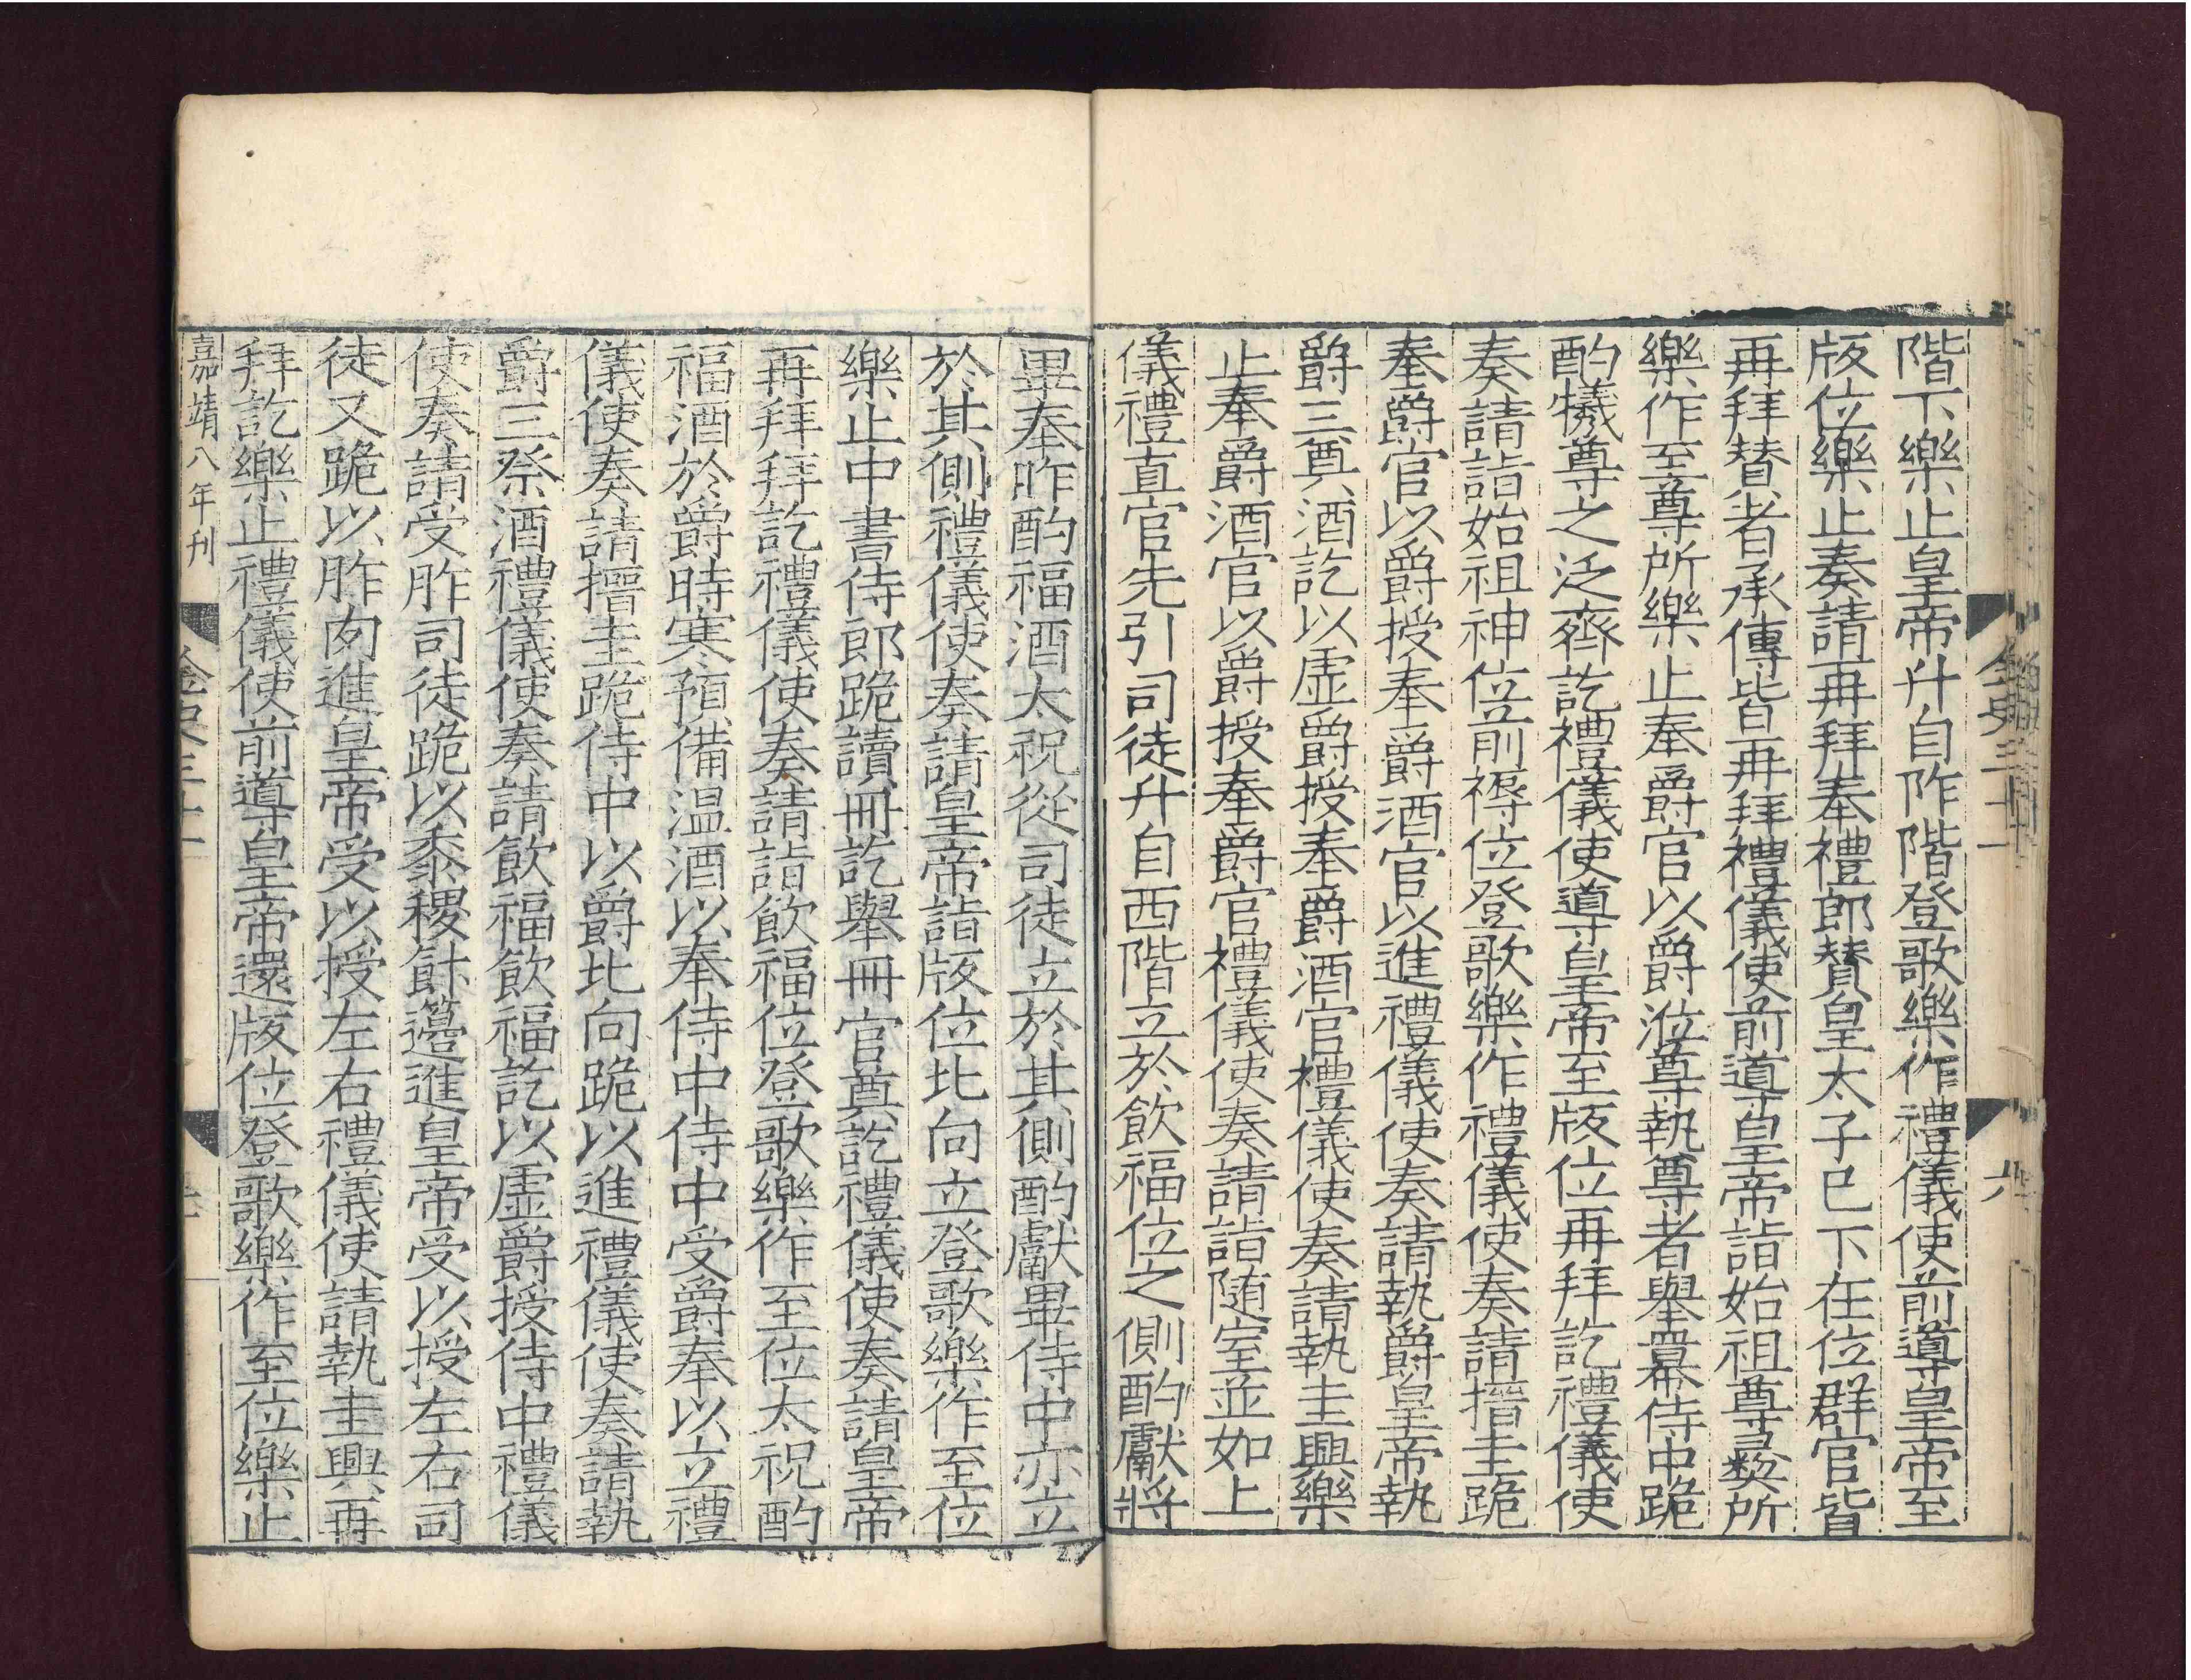 階下樂止皇帝升自阼階登歌樂作禮儀使前導皇帝至
版位樂止奏請再拜奉禮郎贊皇太子已下在位群官皆
再拜賛者承傳皆再拜禮儀使前導皇帝詣始祖尊彝所
樂作至尊所樂止奉爵官以爵涖尊執尊者舉冪侍中跪
酌犧尊之泛齊訖禮儀使導皇帝至版位再拜訖禮儀使
奏請詣始祖神位前褥位登歌樂作禮儀使奏請搢圭跪
奉爵官以爵授奉爵酒官以進禮儀使奏請執爵皇帝執
爵三奠酒訖以虛爵授奉爵酒官禮儀使奏請執圭興樂
止奉爵酒官以爵授奉爵官禮儀使奏請詣随室並如上
儀禮直官先引司徒升自西階立於飲福位之側酌獻將
畢奉昨酌福酒太祝從司徒立於其側酌獻畢侍中亦立
於其側禮儀使奏請皇帝詣版位北向立登歌樂作至位
樂止中書侍郎跪讀冊訖舉冊官奠訖禮儀使奏請皇帝
再拜拜訖禮儀使奏請詣飲福位登歌樂作至位太祝酌
福酒於爵時寒預備温酒以奉侍中侍中受爵奉以立禮
儀使奏請搢圭跪侍中以爵北向跪以進禮儀使奏請執
爵三祭酒禮儀使奏請飲福飲福訖以虛爵授侍中禮儀
使奏請受胙司徒跪以黍稷飰籩進皇帝受以授左右司
徒又跪以胙肉進皇帝受以授左右禮儀使請執圭興再
拜訖樂止禮儀使前導皇帝還版位登歌樂作至位樂止
嘉靖八年刊